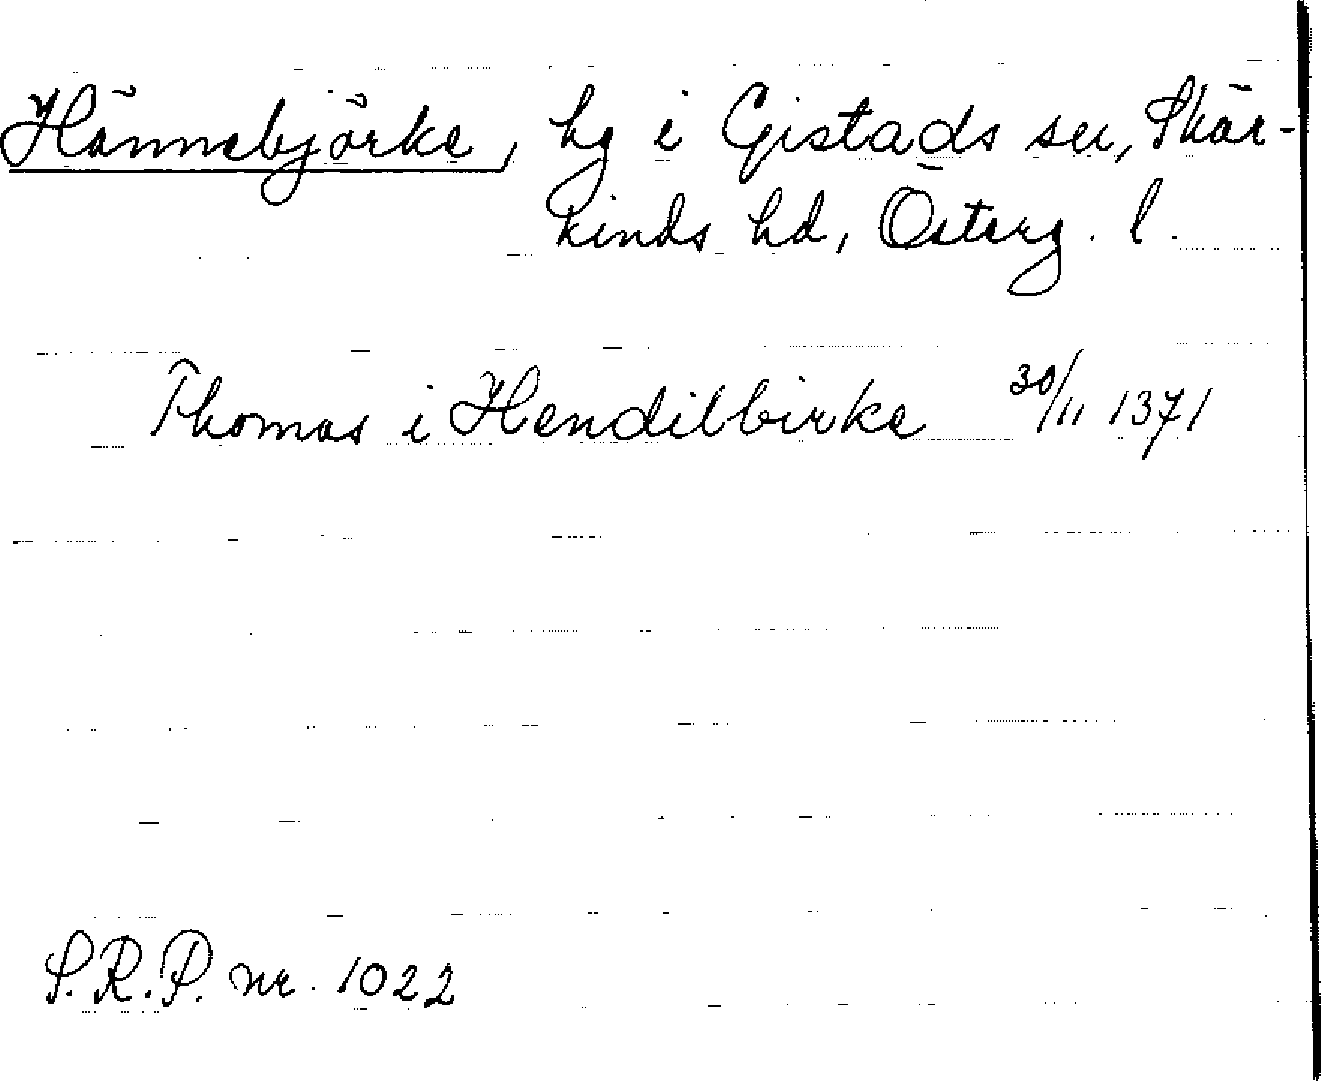 Hännebjörke, hg i Gistads sn, Skär-
kinds hd, Österg. l.
Thomas i Hendilbirke 30/11 1371
S.R.P. nr. 1022